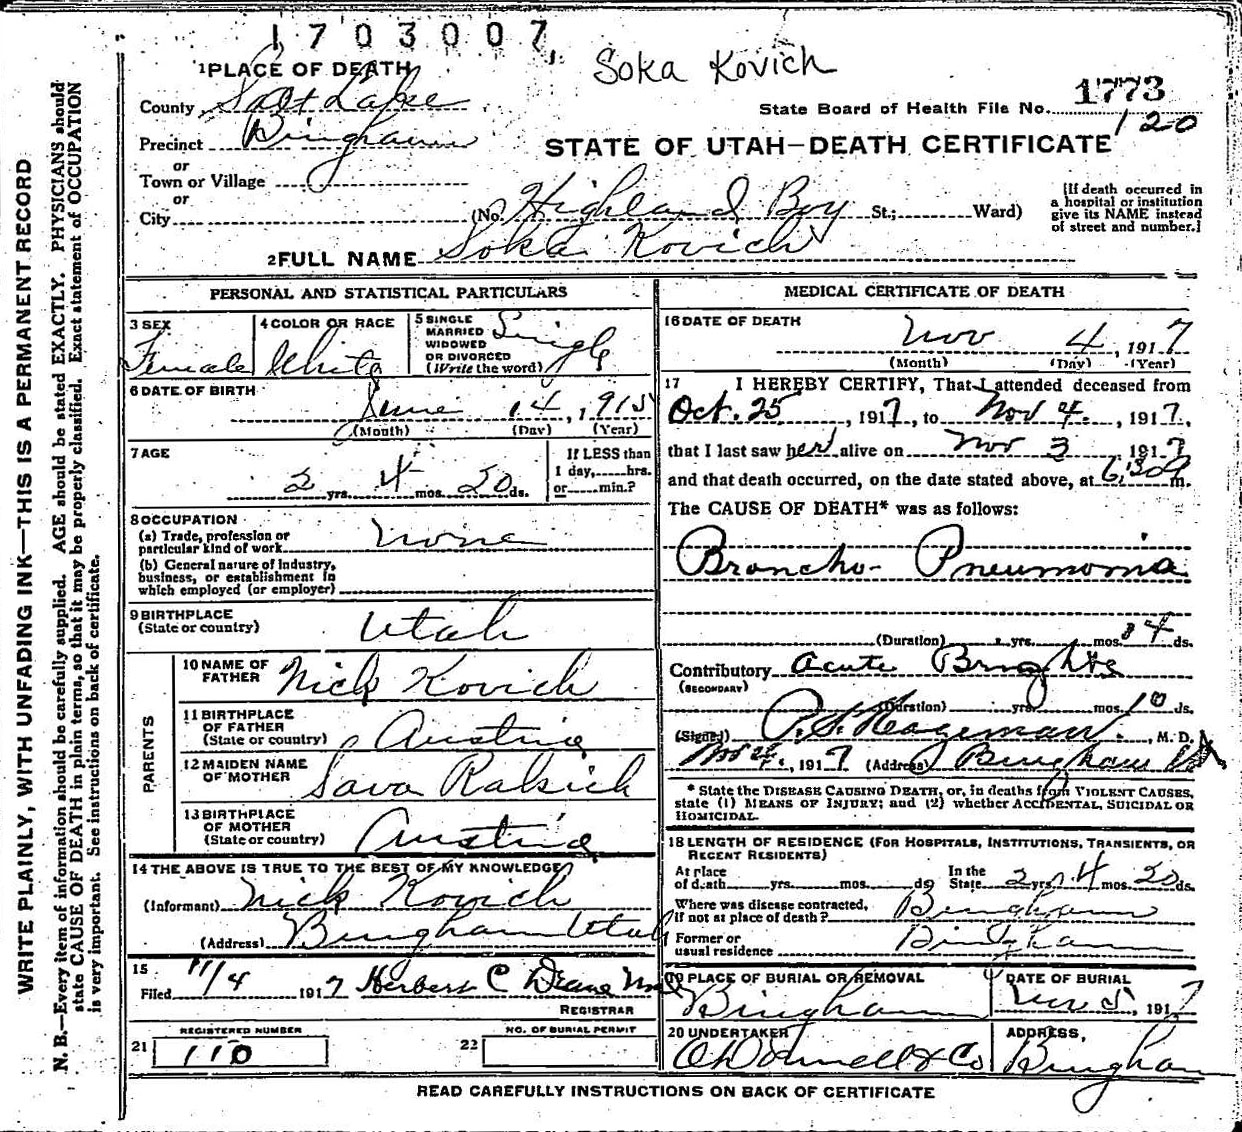 1703007
Soka Kovich
1773
State Board of Health File No.
120
STATE OF UTAH—DEATH CERTIFICATE
1 PLACE OF DEATH
County Salt Lake
Precinct Bingham
or
Town or Village
or
City
(No. Highland Boy St.; Ward)
[If death occurred in
a hospital or institution
give its NAME instead
of street and number.]
2 FULL NAME Soka Kovich
PERSONAL AND STATISTICAL PARTICULARS
3 SEX
Female
4 COLOR OR RACE
White
5 SINGLE
MARRIED
WIDOWED
OR DIVORCED
(Write the word)
Single
6 DATE OF BIRTH
June 14, 1915
(Month) (Day) (Year)
7 AGE
2 yrs. 4 mos. 20 ds.
If LESS than
1 day, hrs.
or min.?
8 OCCUPATION
(a) Trade, profession or
particular kind of work none
(b) General nature of Industry,
business, or establishment in
which employed (or employer)
9 BIRTHPLACE
(State or country) Utah
PARENTS
10 NAME OF
FATHER Nick Kovich
11 BIRTHPLACE
OF FATHER
(State or country) Austria
12 MAIDEN NAME
OF MOTHER Sava Ralsich
13 BIRTHPLACE
OF MOTHER
(State or country) Austria
14 THE ABOVE IS TRUE TO THE BEST OF MY KNOWLEDGE
(Informant) Nick Kovich
(Address) Bingham Utah
15
Filed 11/4 1917 Herbert C Deane
REGISTRAR
REGISTERED NUMBER
21 110
NO. OF BURIAL PERMIT
22
MEDICAL CERTIFICATE OF DEATH
16 DATE OF DEATH
Nov 4, 1917
(Month) (Day) (Year)
17 I HEREBY CERTIFY, That I attended deceased from
Oct. 25, 1917, to Nov 4., 1917,
that I last saw her alive on Nov 3 1917
and that death occurred, on the date stated above, at 6:30 a m.
The CAUSE OF DEATH* was as follows:
Broncho- Pneumonia
(Duration) yrs. mos. 4 ds.
Contributory Acute Brights
(SECONDARY)
(Duration) yrs. mos. 10 ds.
(Signed) P. S. Hageman. , M. D.
Nov 4., 1917 (Address) Bingham Ut
* State the DISEASE CAUSING DEATH, or, in deaths from VIOLENT CAUSES,
state (1) MEANS OF INJURY; and (2) whether ACCIDENTAL, SUICIDAL OR
HOMICIDAL.
18 LENGTH OF RESIDENCE (FOR HOSPITALS, INSTITUTIONS, TRANSIENTS, OR
RECENT RESIDENTS)
At place
of death yrs. mos. ds.
In the
State 2 yrs. 4 mos. 20 ds.
Where was disease contracted,
if not at place of death? Bingham
Former or
usual residence Bingham
19 PLACE OF BURIAL OR REMOVAL
Bingham
DATE OF BURIAL
Nov 5, 1917
20 UNDERTAKER
O'Donnell & Co
ADDRESS,
Bingham
READ CAREFULLY INSTRUCTIONS ON BACK OF CERTIFICATE
WRITE PLAINLY, WITH UNFADING INK—THIS IS A PERMANENT RECORD
N. B.—Every item of information should be carefully supplied. AGE should be stated EXACTLY. PHYSICIANS should
state CAUSE OF DEATH in plain terms, so that it may be properly classified. Exact statement of OCCUPATION
is very important. See instructions on back of certificate.